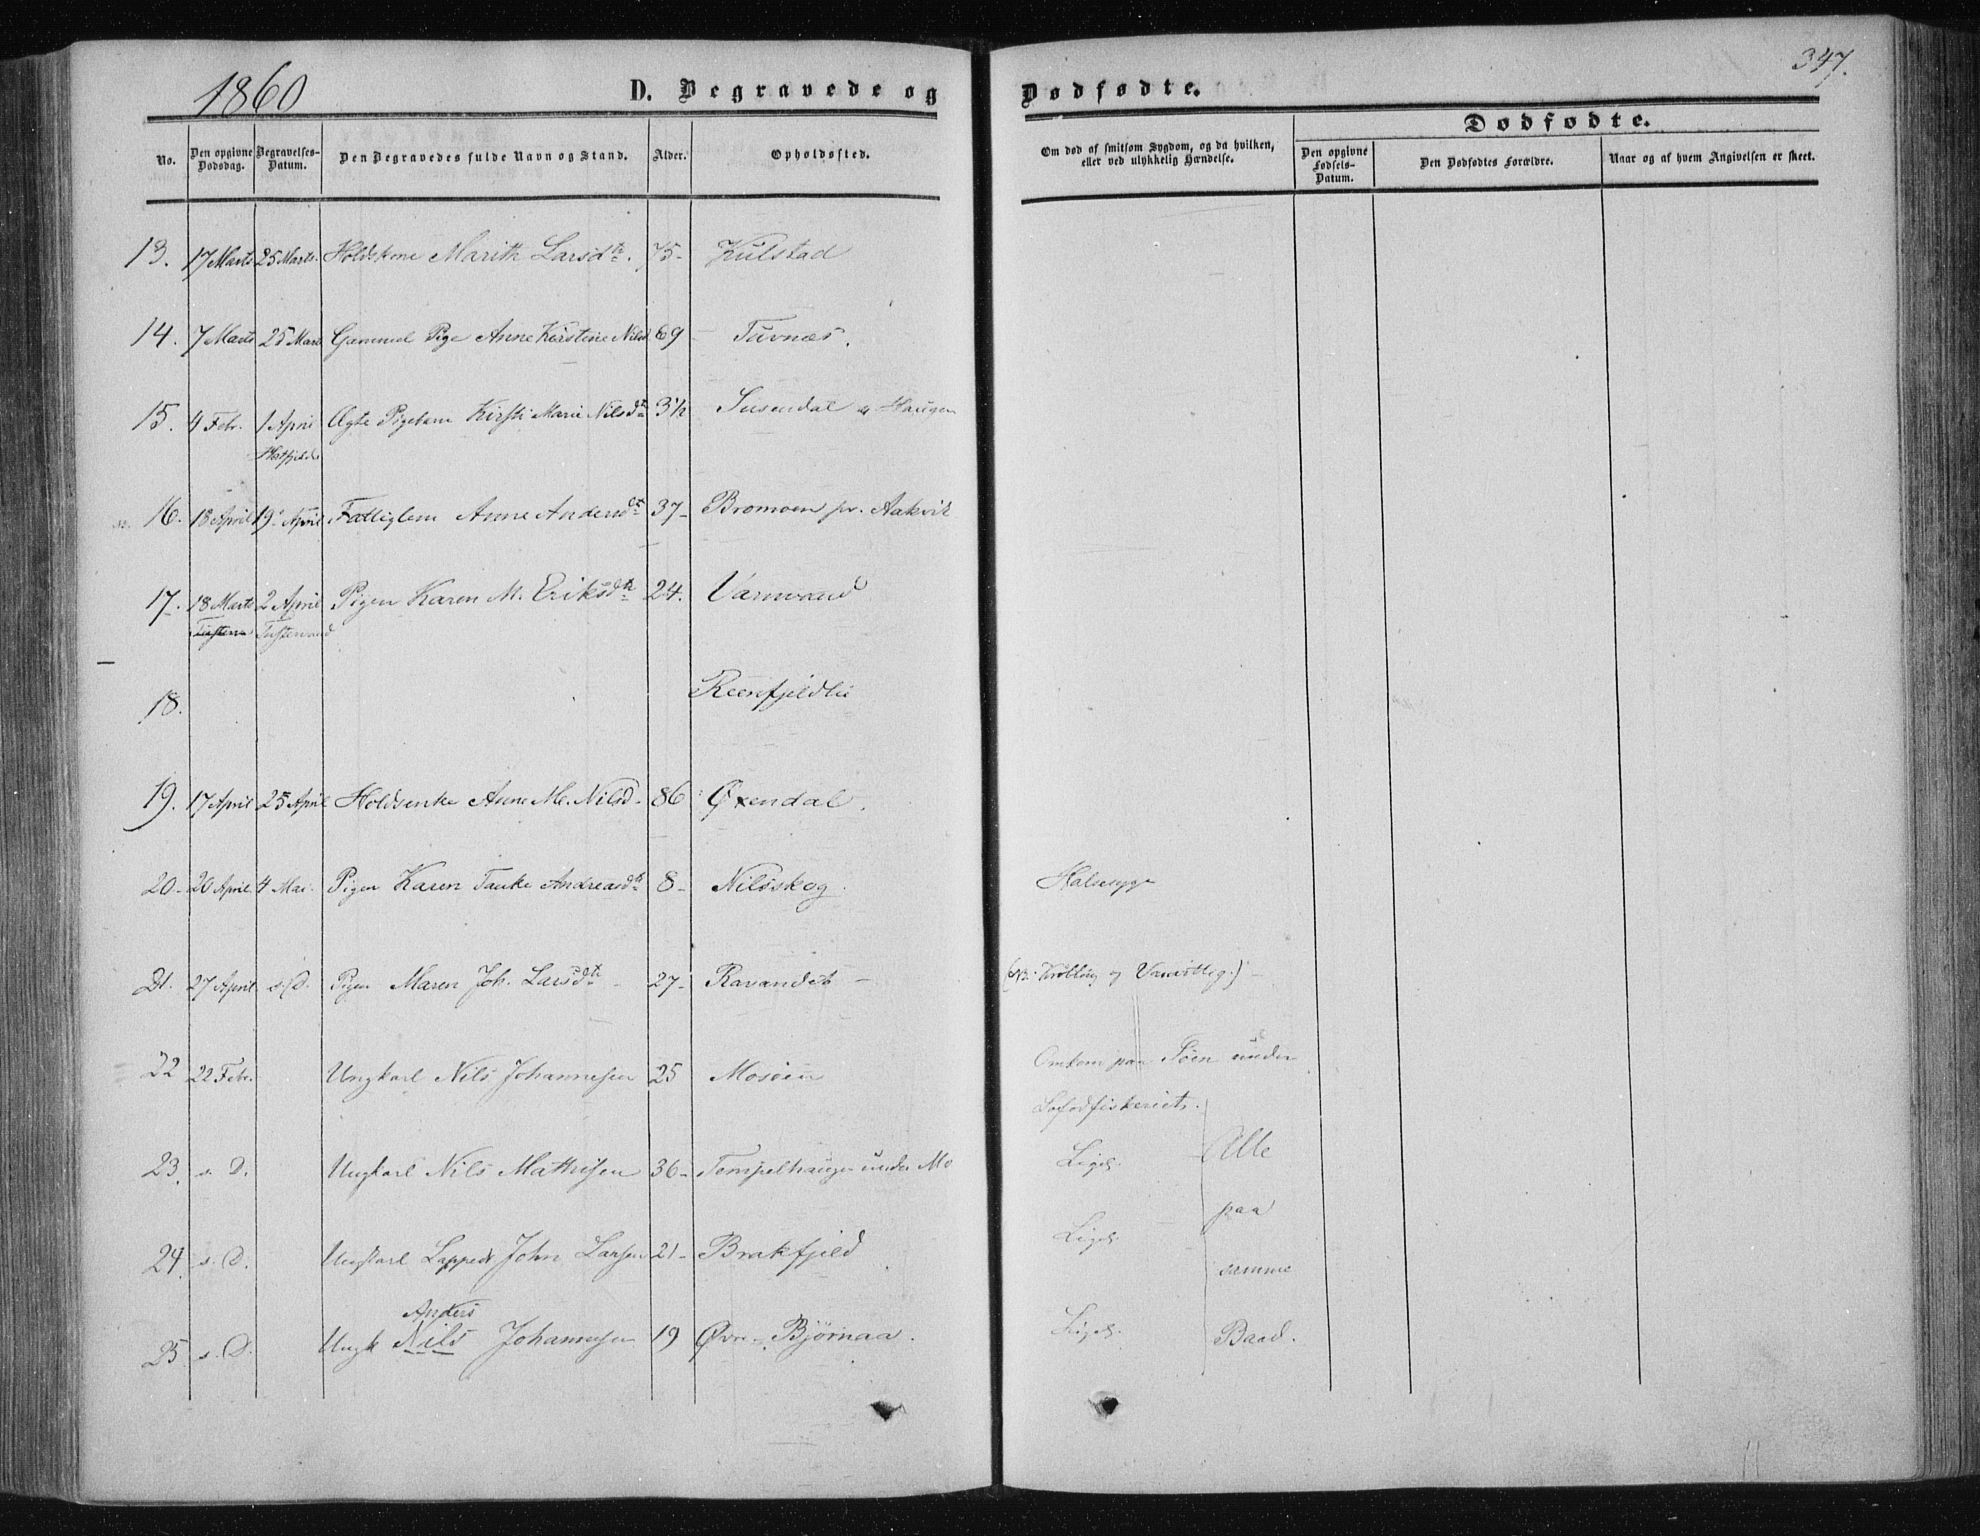 1860
D. Begravede og Dødfødte.
347.
Dødfødte.
No.
Den opgivne Dødsdag.
Begravelses-Datum.
Den Begravedes fulde Navn og Stand.
Alder.
Opholdssted.
Om død af smitsom Sygdom, og da hvilken, eller ved ulykkelig Hændelse.
Den opgivne Fødsels-Datum.
Den Dødfødtes Forældre.
Naar og af hvem Angivelsen er skeet.
13. 17 Marts 25 Marts. Holdskone Marith Larsdtr. 75- Kulstad
14. 7 Marts 25 Mars Gammel Pige Anne Kirstine Nilsd 69 - Tuvnæs.
15. 4 Febr. 1 April Ægte Pigebarn Kirsti Marie Nilsdtr 3½ Susendal Haugen
Hatfjeld
16. 18 April 19 April Fattiglem Anne Andersdtr 37- Bromoen pr. Aakvik
17. 18 Marts 2 April Pigen Karen M. Eriksdtr 24. Varnvand
Tustervand
18. Reenfjeldlie
19. 17 April 25 April Holdsenke Anne M. Nilsd. 86 Øxendal.
20- 20 April 4 Mai. Pigen Karen Tanke Andreasdtr 8- Nilsskog. Halssyge
21. 27 April s. D. Pigen Maren Joh. Larsdtr 27- Ravandet -
22 22 Febr. Ungkarl Nils Johannesen 25 Mosøen Omkom paa Søen under
Lofodfiskeriet.
23. s. D. Ungkarl Nils Mathisen 36- Tempelhaugen under Mo Ligel. Alle
paa
24. s. D. Ungkarl Lappedr John Larsen 21- Brakfjeld Ligel.
samme
Anders
25. s. D. Ungk Nils Johannesen 19 Øvre Bjørnaa. Ligel. Baad.